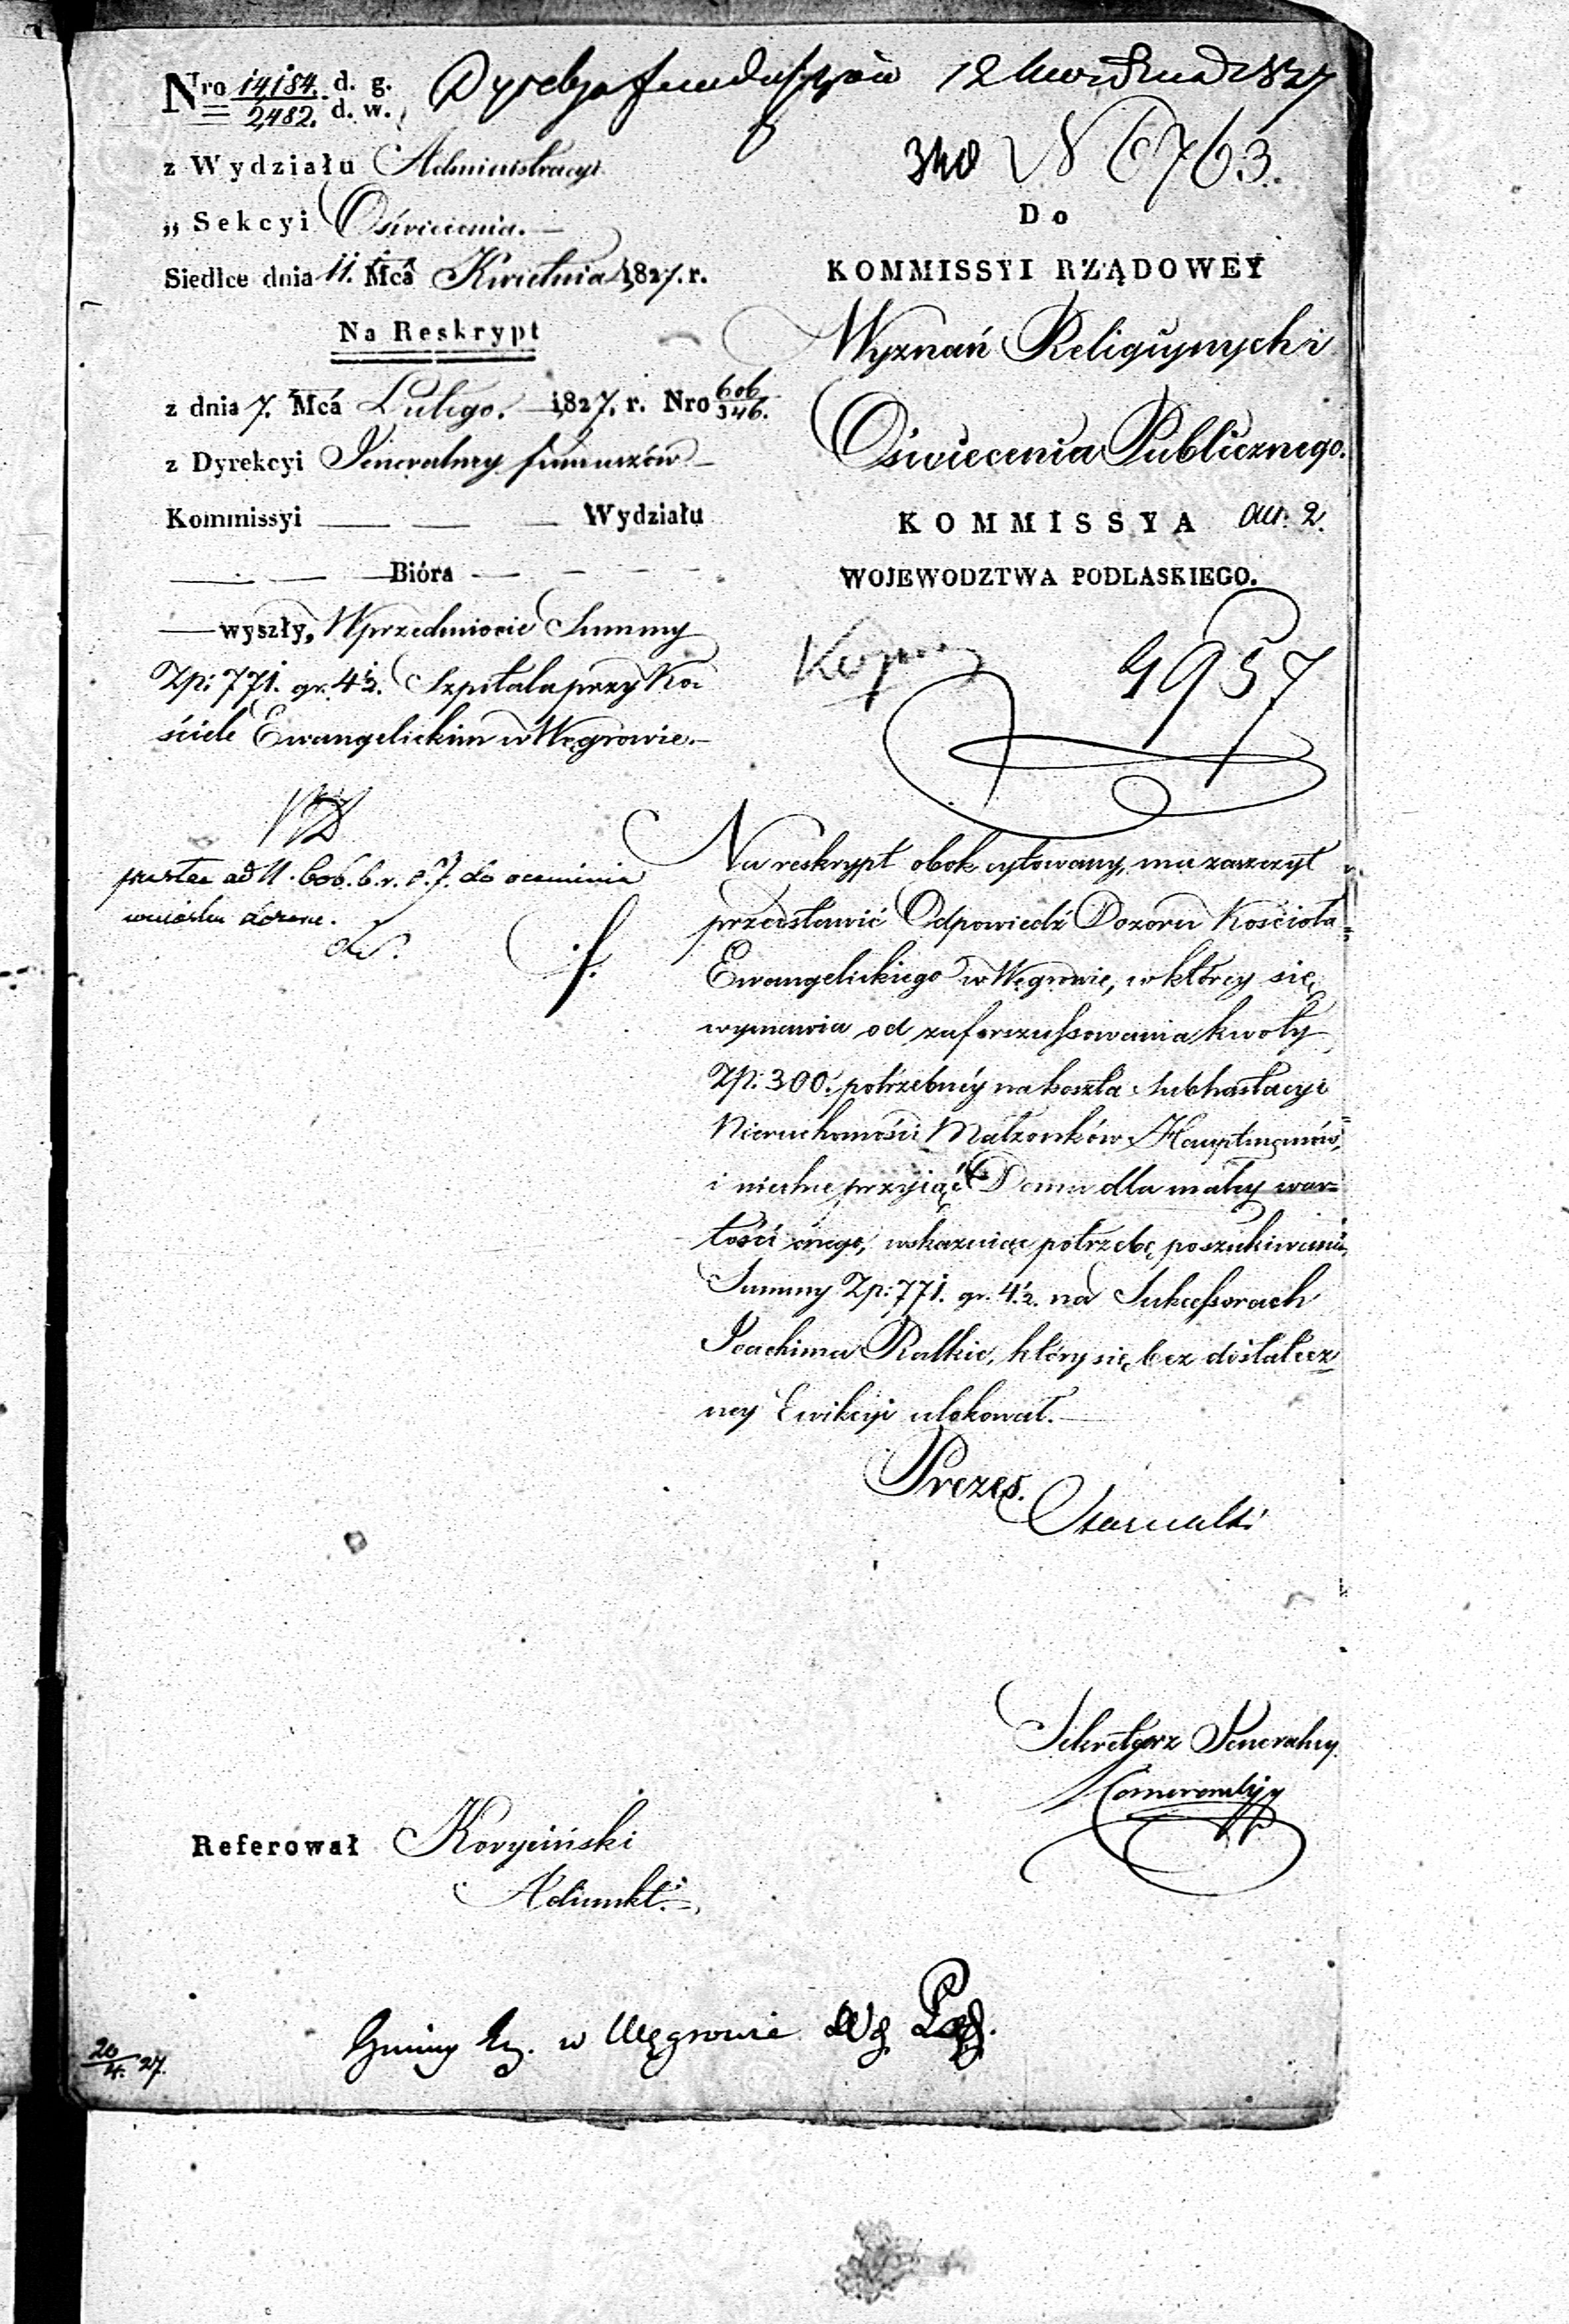 Nro 14,184. d. g.
2,482. d. w.
Dyrekcja funduszów 12 Kwietnia 1827
z Wydziału Administracyi
„ Sekcyi Oświecenia.
Siedlce dnia 11. Mcâ Kwietnia 1827. r.
Na Reskrypt
z dnia 7. Mcâ Lutego. 1827. r. Nro 606/346.
z Dyrekcyi Jeneralney funduszów
Kommissyi Wydziału
Bióra
wyszły, W przedmiocie Summy
Zp: 771. gr. 4½. Szpitala przy Ko-
ściele Ewangelickim w Węgrowie.
N 6763.
Do
KOMMISSYI RZĄDOWEY
Wyznań Religijnych i
Oświecenia Publicznego.
KOMMISSYA
WOJEWODZTWA PODLASKIEGO.
4957
ad N. 606. do ocenienia
wniosku
Na reskrypt obok cytowany, ma zaszczyt
przedstawić Odpowiedź Dozoru Kościoła
Ewangelickiego w Węgrowie, w którey się
wymawia od zaforszussowania kwoty
Zp. 300. potrzebnéy na koszta subhastacyi
Nieruchomości Małżonków Hauptmanów,
i niechce przyiąć Domu dla małey war=
tości onego, wskazuiąc potrzebę poszukiwania
Summy Zp: 771. gr. 4½. na Sukcessorach
Joachima Ratkie, który się bez dostatecz=
ney Ewikcyi ulokował.
Prezes.
Sekretarz Jeneralny
Referował Koryciński
Adiunkt.
Gminy Ew. w Węgrowie
20/4. 27.